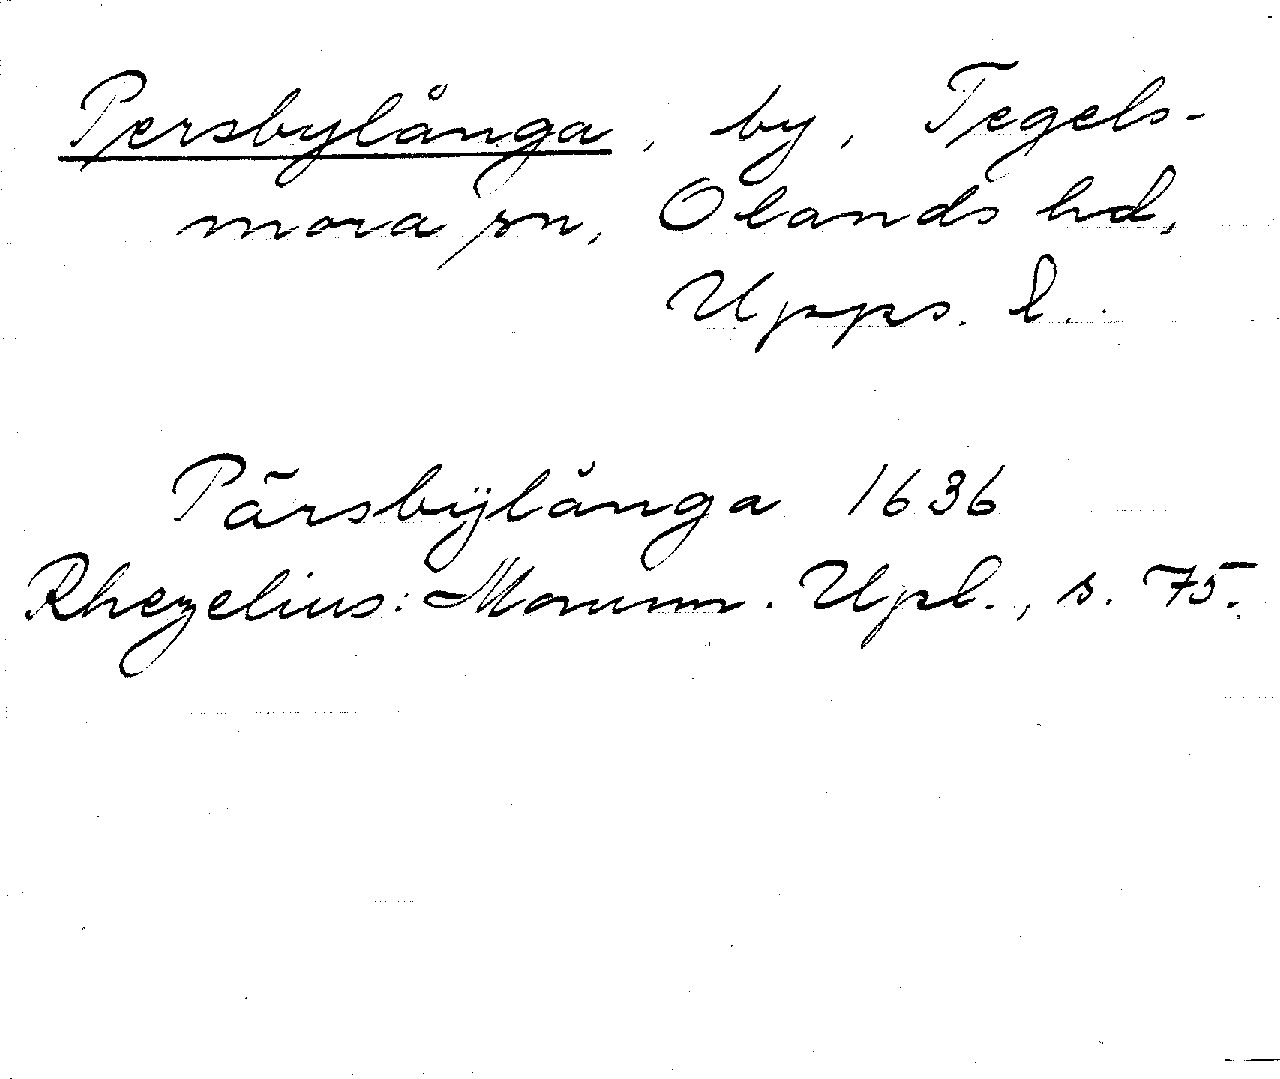 Persbylånga, by, Tegels-
mora sn, Olands hd,
Upps. l.
Pärsbÿlånga 1636
Rhezelius: Monum. Upl., s. 75.